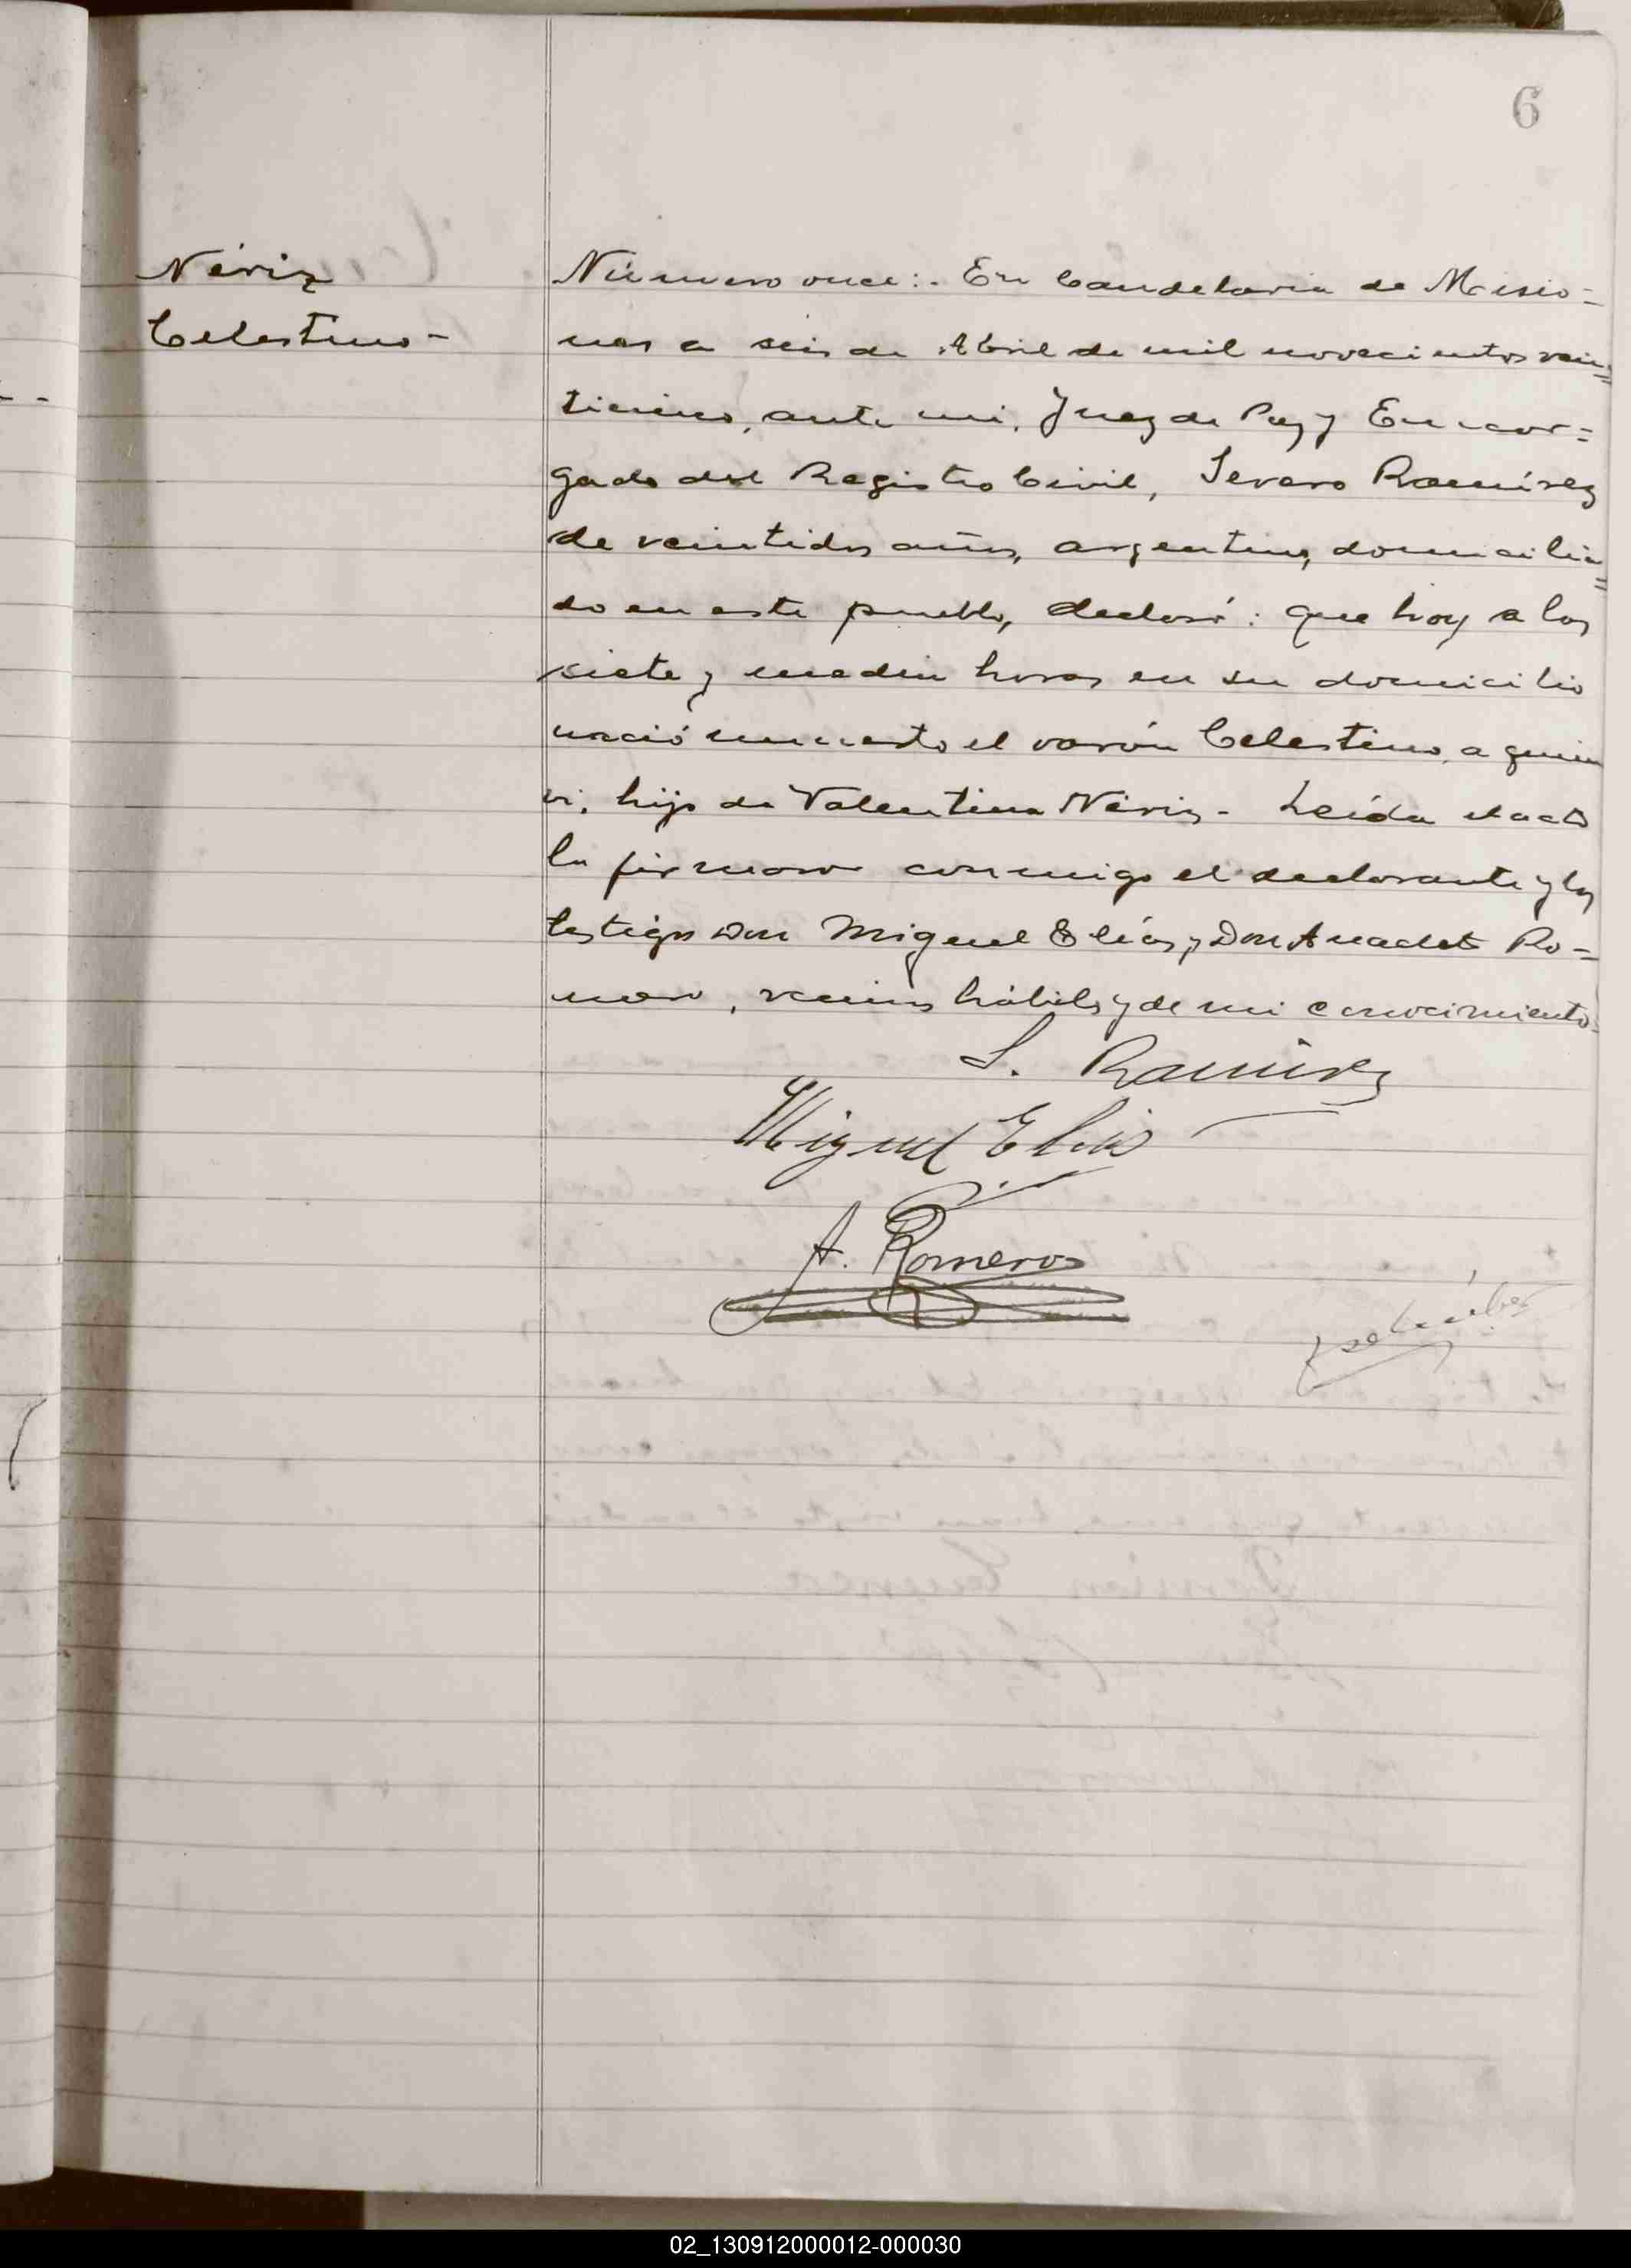 6
Nériz
Celestino-
Número once:- En Candelaria de Misio=
nes a seis de Abril de mil novecientos vein=
ticinco, ante mi, Juez de Paz y Encar=
gado del Registro Civil, Severo Ramírez
de veintidos años, argentino, domicilia=
do en este pueblo, declaró: que hoy a las
siete y media horas en su domicilio
nació muerto el varón Celestino, a quien
vi, hijo de Valentina Nériz- Leída el acta
la firmaron conmigo el declarante y los
testigos Don Miguel Elías y Don Anacleto Ro=
mero, vecinos hábiles y de mi conocimiento-
S. Ramírez
Miguel Elias
A. Romero
02_130912000012-000030